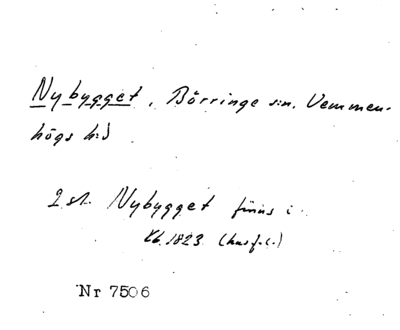 Nybygget, Börringe s:n, Vemmen-
högs h:d
2 st. Nybygget finns i
Kb. 1823 (husf.l.)
Nr 7506